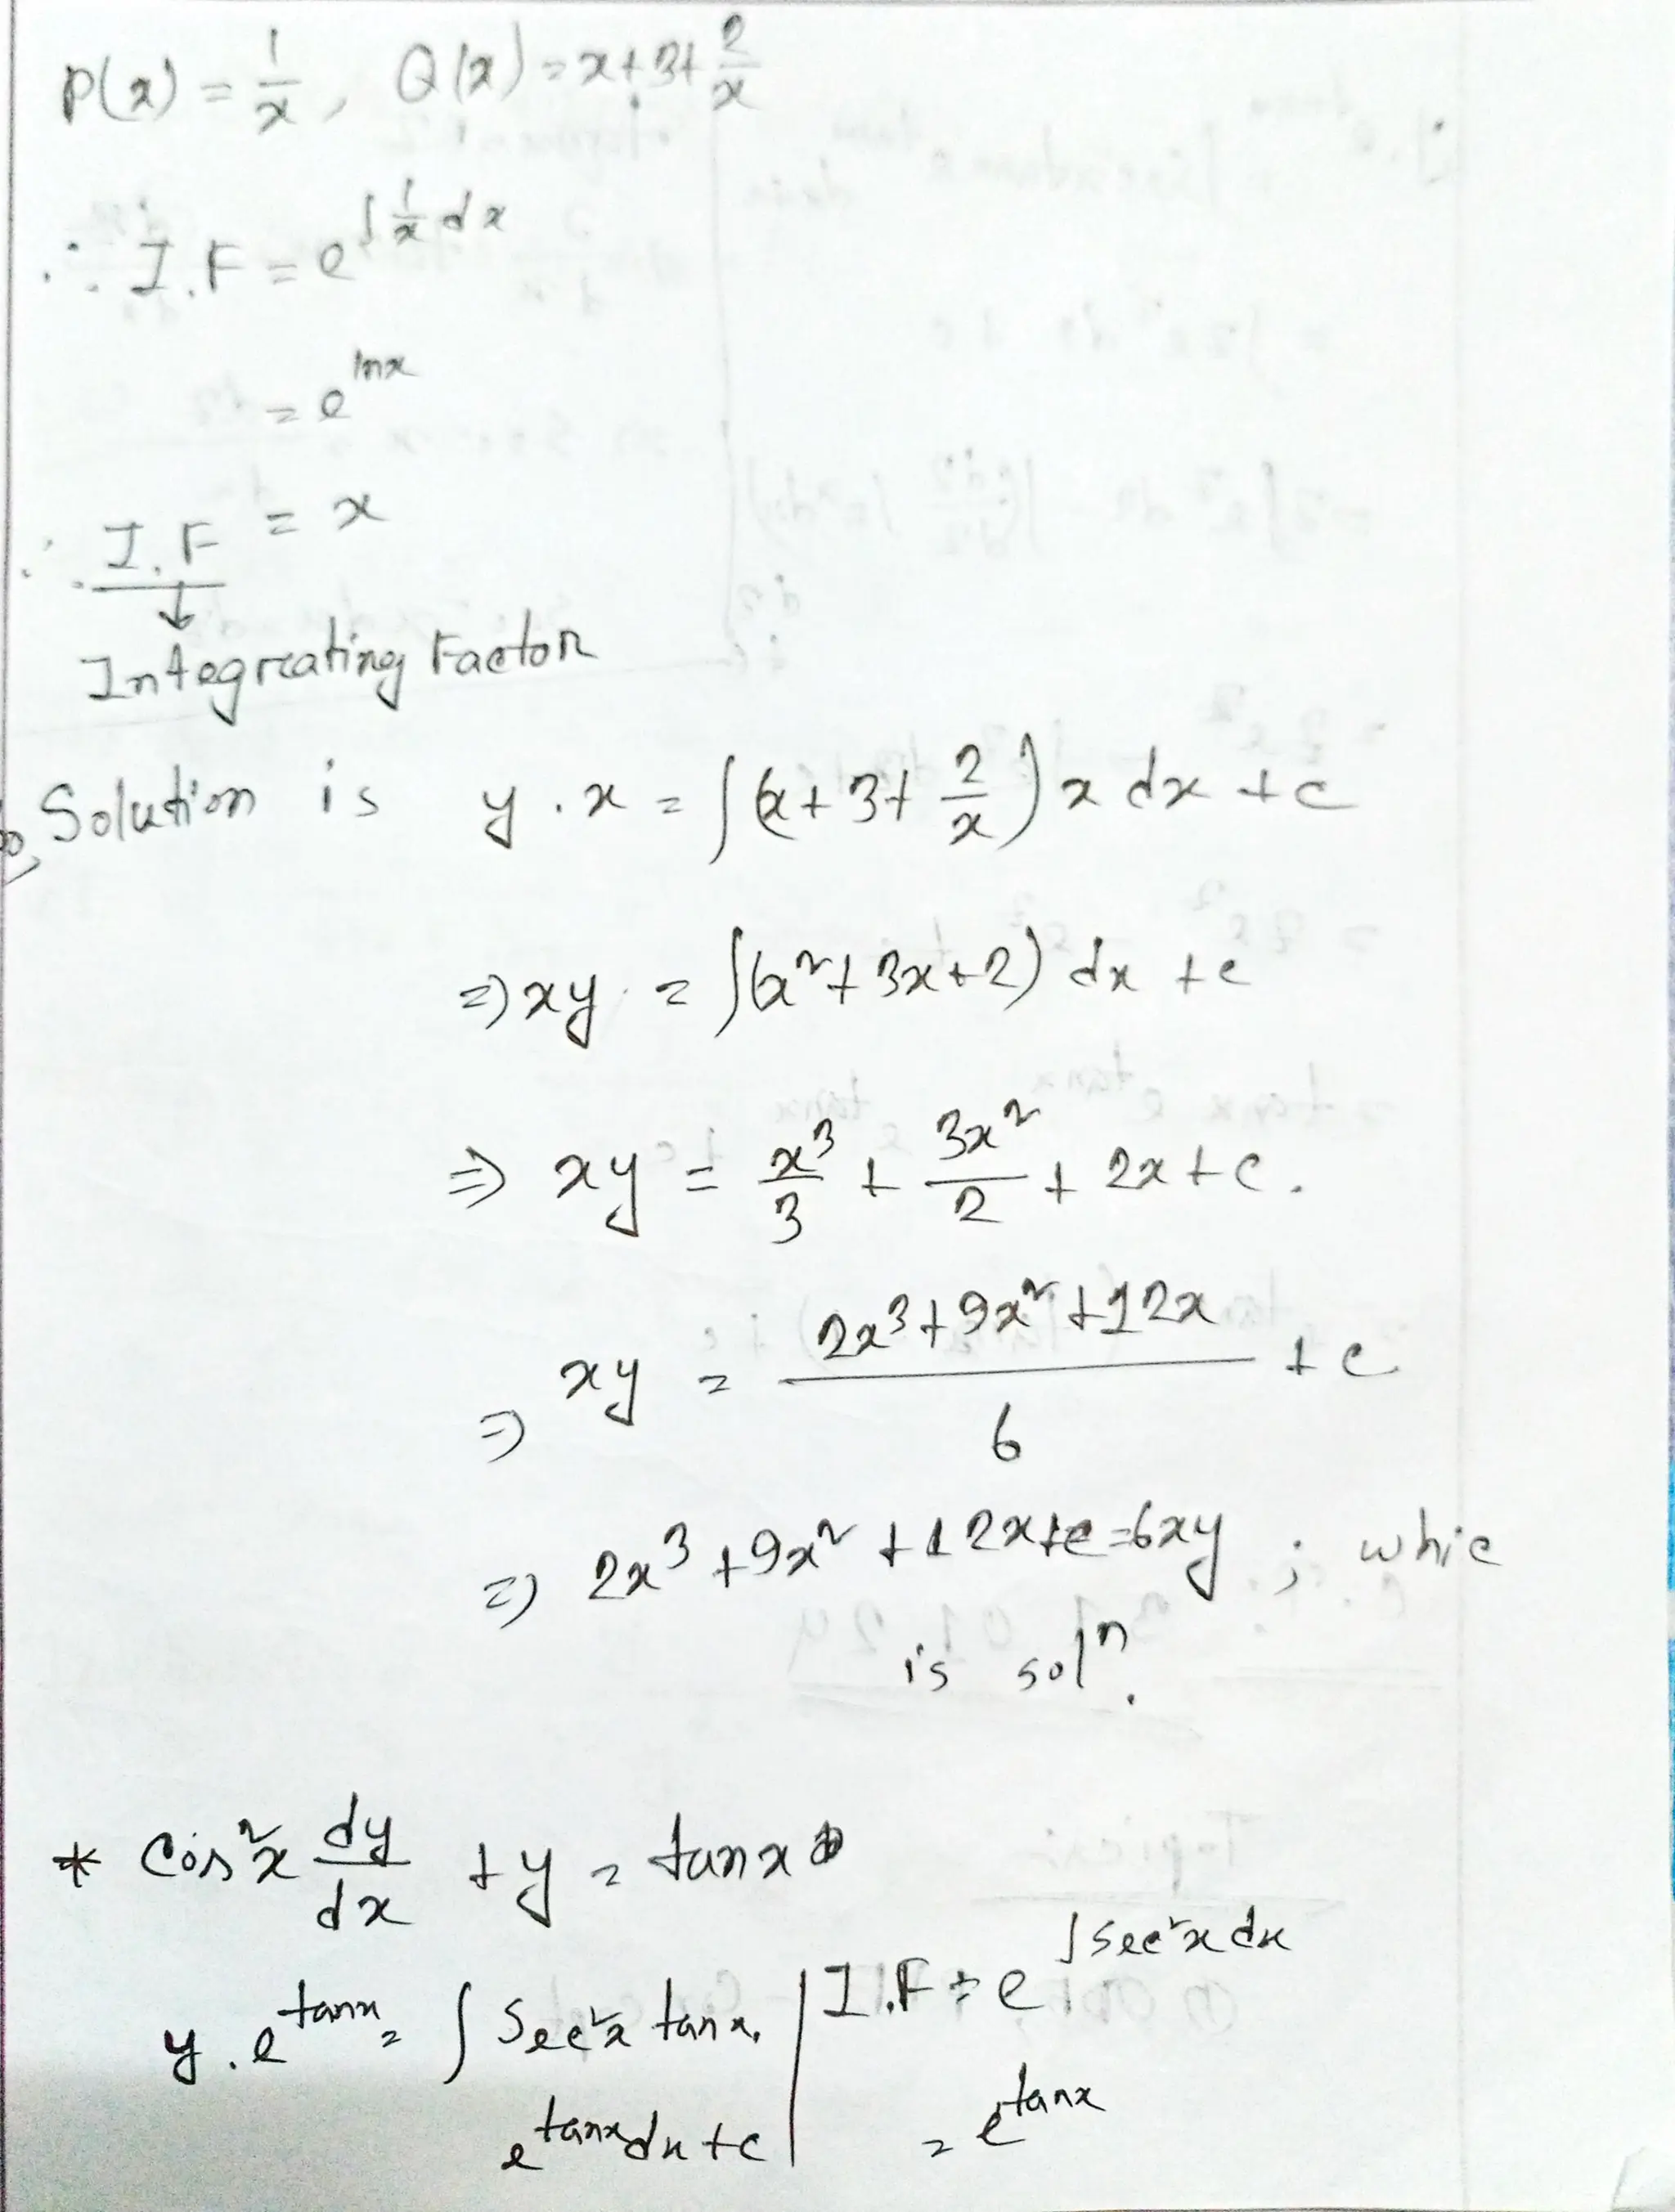 P(x) = 1/x, Q(x) = x+3+2/x
∴ I.F = e^∫1/x dx
= e^lnx
∴ I.F = x
↓
Integrating Factor
Solution is y.x = ∫(x+3+2/x) x dx + c
⇒ xy = ∫(x²+3x+2) dx + c
⇒ xy = x³/3 + 3x²/2 + 2x + c.
⇒ xy = (2x³+9x²+12x)/6 + c
⇒ 2x³+9x²+12x+c=6xy ; whic
is solⁿ.
* Cos²x dy/dx + y = tanx
y.e^tanx = ∫ Sec²x tanx. | I.F = e^∫sec²x dx
e^tanx dx + c | = e^tanx